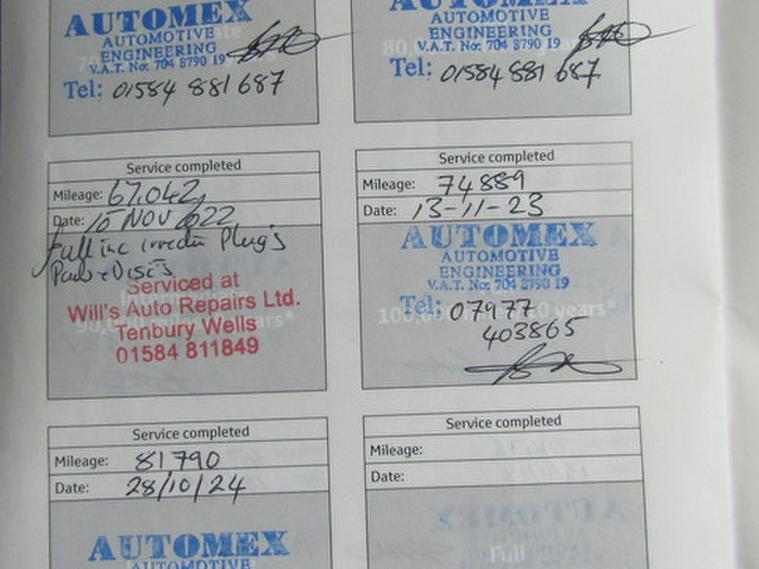 AUTOMEX
AUTOMOTIVE
ENGINEERING
V.A.T. No: 704 8790 19
Tel: 01584 881 687
AUTOMEX
AUTOMOTIVE
ENGINEERING
V.A.T. No: 704 8790 19
80,
Tel: 01584 881 687
Service completed
Mileage: 67,042
Date: 15 NOV 2022
Full inc iridium Plug's
Pads + Discs
Serviced at
Will's Auto Repairs Ltd.
Tenbury Wells
01584 811849
Service completed
Mileage: 74889
Date: 13-11-23
AUTOMEX
AUTOMOTIVE
ENGINEERING
V.A.T. No: 704 8790 19
Tel: 07977
403865
Service completed
Mileage: 81790
Date: 28/10/24
AUTOMEX
AUTOMOTIVE
Service completed
Mileage:
Date:
Full